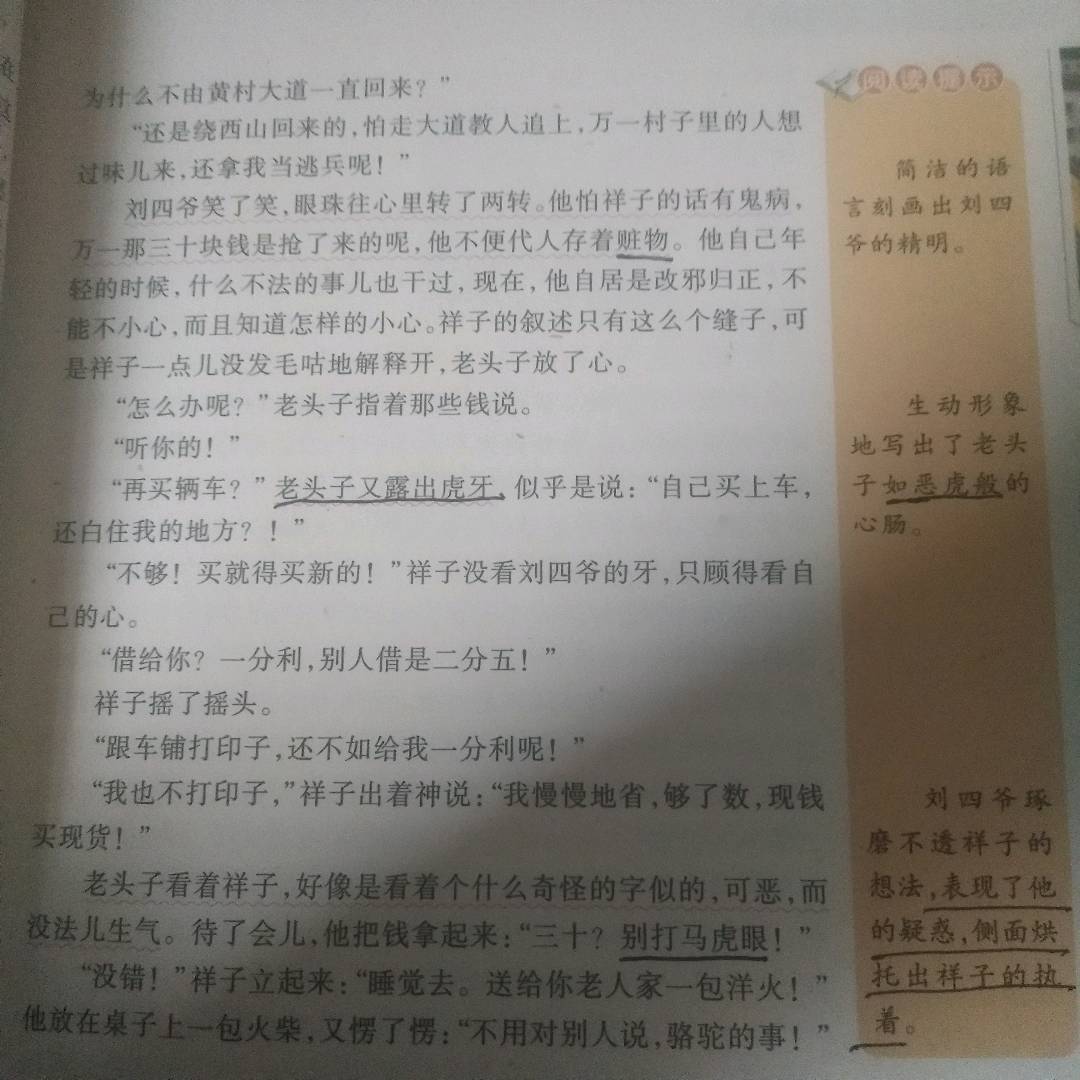 为什么不由黄村大道一直回来？”
“还是绕西山回来的，怕走大道教人追上，万一村子里的人想
过味儿来，还拿我当逃兵呢！”
刘四爷笑了笑，眼珠往心里转了两转。他怕祥子的话有鬼病，
万一那三十块钱是抢了来的呢，他不便代人存着赃物。他自己年
轻的时候，什么不法的事儿也干过，现在，他自居是改邪归正，不
能不小心，而且知道怎样的小心。祥子的叙述只有这么个缝子，可
是祥子一点儿没发毛咕地解释开，老头子放了心。
“怎么办呢？”老头子指着那些钱说。
“听你的！”
“再买辆车？”老头子又露出虎牙，似乎是说：“自己买上车，
还白住我的地方？！”
“不够！买就得买新的！”祥子没看刘四爷的牙，只顾得看自
己的心。
“借给你？一分利，别人借是二分五！”
祥子摇了摇头。
“跟车铺打印子，还不如给我一分利呢！”
“我也不打印子，”祥子出着神说：“我慢慢地省，够了数，现钱
买现货！”
老头子看着祥子，好像是看着个什么奇怪的字似的，可恶，而
没法儿生气。待了会儿，他把钱拿起来：“三十？别打马虎眼！”
“没错！”祥子立起来：“睡觉去。送给你老人家一包洋火！”
他放在桌子上一包火柴，又愣了愣：“不用对别人说，骆驼的事！”
阅读提示
简洁的语
言刻画出刘四
爷的精明。
生动形象
地写出了老头
子如恶虎般的
心肠。
刘四爷琢
磨不透祥子的
想法，表现了他
的疑惑，侧面烘
托出祥子的执
着。